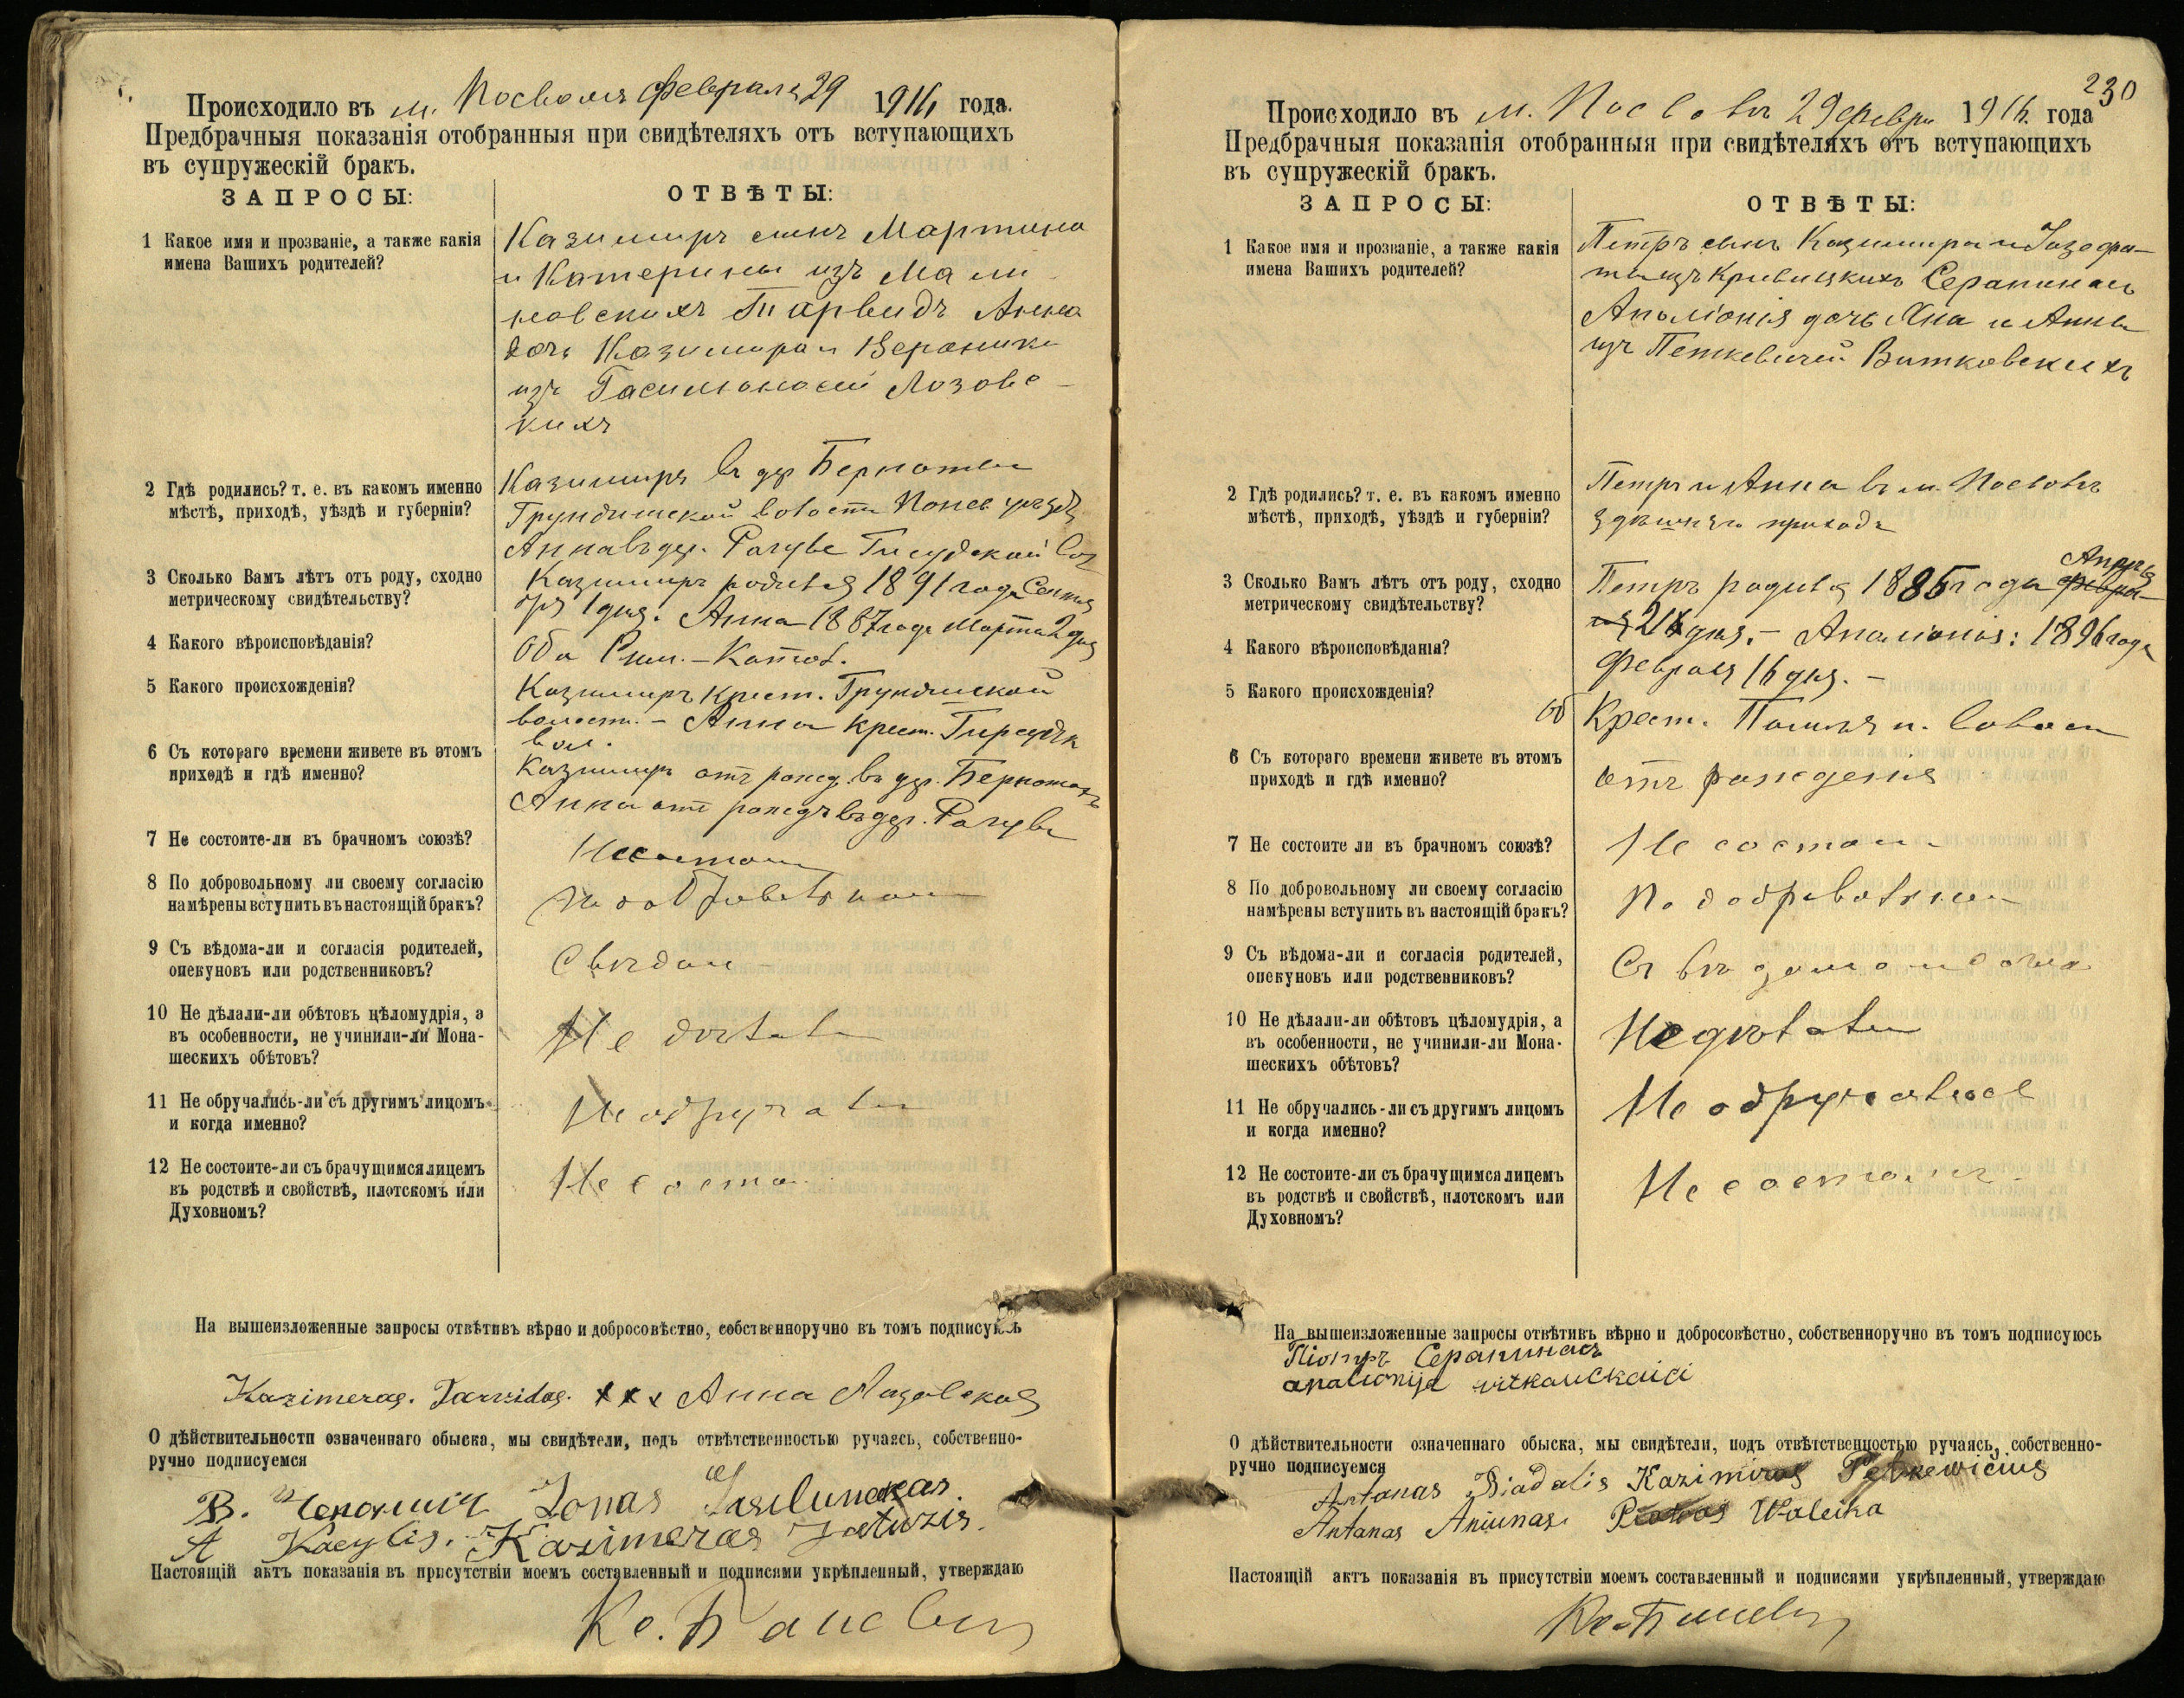 Происходило въ м. Посволя Февраля 29 1916 года.
Предбрачныя показанія отобранныя при свидѣтеляхъ отъ вступающихъ
въ супружескій бракъ.
ЗАПРОСЫ:
ОТВѢТЫ:
1 Какое имя и прозваніе, а также какія
имена Вашихъ родителей?
Казимиръ сынъ Мартина
и Катерины изъ Мали-
новскихъ Тарвидъ Анна
дочь Казимира и Вероники
изъ Гасилюносей Лозовс-
кихъ
2 Гдѣ родились? т. е. въ какомъ именно
мѣстѣ, приходѣ, уѣздѣ и губерніи?
Казимиръ въ др
волости Понев уѣздѣ
Анна въ дер.
3 Сколько Вамъ лѣтъ отъ роду, сходно
метрическому свидѣтельству?
Казимиръ родился 1891 года Сентя
бря 1 дня. Анна 1887 года Марта 2 дня
4 Какого вѣроисповѣданія?
Оба Рим.-Катол.
5 Какого происхожденія?
Казимиръ крест.
волости. - Анна крест.
вол.
6 Съ котораго времени живете въ этомъ
приходѣ и гдѣ именно?
Казимиръ отъ рожд. въ др.
Анна отъ рожд. въ дер.
7 Не состоите-ли въ брачномъ союзѣ?
Не состоим
8 По добровольному ли своему согласію
намѣрены вступить въ настоящій бракъ?
По добровольном
9 Съ вѣдома-ли и согласія родителей,
опекуновъ или родственниковъ?
С вѣдом
10 Не дѣлали-ли обѣтовъ цѣломудрія, а
въ особенности, не учинили-ли Мона-
шескихъ обѣтовъ?
Не дѣлали
11 Не обручались-ли съ другимъ лицомъ
и когда именно?
Не обручали
12 Не состоите-ли съ брачущимся лицемъ
въ родствѣ и свойствѣ, плотскомъ или
Духовномъ?
Не состо
На вышеизложенные запросы отвѣтивъ вѣрно и добросовѣстно, собственноручно въ томъ подписуюсь
Kazimeras. Tarvidas. xxx Анна Лазовская
О дѣйствительности означеннаго обыска, мы свидѣтели, подъ отвѣтственностью ручаясь, собственно-
ручно подписуемся
В. Jonas
А Kazimeras
Настоящій актъ показанія въ присутствіи моемъ составленный и подписями укрѣпленный, утверждаю
230
Происходило въ м. Посволь 29 февра 1916 года
Предбрачныя показанія отобранныя при свидѣтеляхъ отъ вступающихъ
въ супружескій бракъ.
ЗАПРОСЫ:
ОТВѢТЫ:
1 Какое имя и прозваніе, а также какія
имена Вашихъ родителей?
Петръ сынъ Казимира и Іозефа-
ты изъ Кривицкихъ Серапинасъ
Аполіонія дочь Яна и Анны
изъ Петкевичей Витковскихъ
2 Гдѣ родились? т. е. въ какомъ именно
мѣстѣ, приходѣ, уѣздѣ и губерніи?
Петръ и Анна въ м. Посволь
здѣшняго прихода
3 Сколько Вамъ лѣтъ отъ роду, сходно
метрическому свидѣтельству?
Апрля
Петръ родился 1885 года февра-
дня. - Аполіонія: 1896 года
Февраля 16 дня. -
4 Какого вѣроисповѣданія?
5 Какого происхожденія?
Об Крест.
6 Съ котораго времени живете въ этомъ
приходѣ и гдѣ именно?
отъ рожденія
7 Не состоите ли въ брачномъ союзѣ?
Не состоим
8 По добровольному ли своему согласію
намѣрены вступить въ настоящій бракъ?
По добровольном
9 Съ вѣдома-ли и согласія родителей,
опекуновъ или родственниковъ?
Съ вѣдома
10 Не дѣлали-ли обѣтовъ цѣломудрія, а
въ особенности, не учинили-ли Мона-
шескихъ обѣтовъ?
Не дѣлали
11 Не обручались-ли съ другимъ лицомъ
и когда именно?
Не обручались
12 Не состоите-ли съ брачущимся лицемъ
въ родствѣ и свойствѣ, плотскомъ или
Духовномъ?
Не состоимъ
На вышеизложенные запросы отвѣтивъ вѣрно и добросовѣстно, собственноручно въ томъ подписуюсь
Піотръ Серапинасъ
apalionija vitkauckaici
О дѣйствительности означеннаго обыска, мы свидѣтели, подъ отвѣтственностью ручаясь, собственно-
ручно подписуемся
Antanas Kazimiras Petkewičius
Antanas Aniunas Waleika
Настоящій актъ показанія въ присутствіи моемъ составленный и подписями укрѣпленный, утверждаю